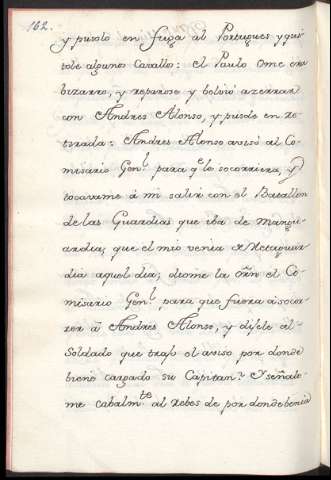 162.
y pusolo en fuga al Portugues y qui
tole algunos Cavallos: el Paulo Ome era
bizarro, y reparose y bolvió azerrar
con Andres Alonso, y pusole en re
tirada: Andres Alonso avisó al Co-
misario Gen.l para q.e lo socorriera, y
tocavame á mi salir con el Batallon
de las Guardias que iba de mangu
ardia, que el mio venia de Retaguar
dia aquel dia; diome la orñ el Co
misario Gen.l para que fuera á socor
rer á Andres Alonso, y dijele al-
Soldado que trajo el aviso por donde
biene cargado su Capitan? Y señalo-
me cabalm.te al rebes de por donde benia